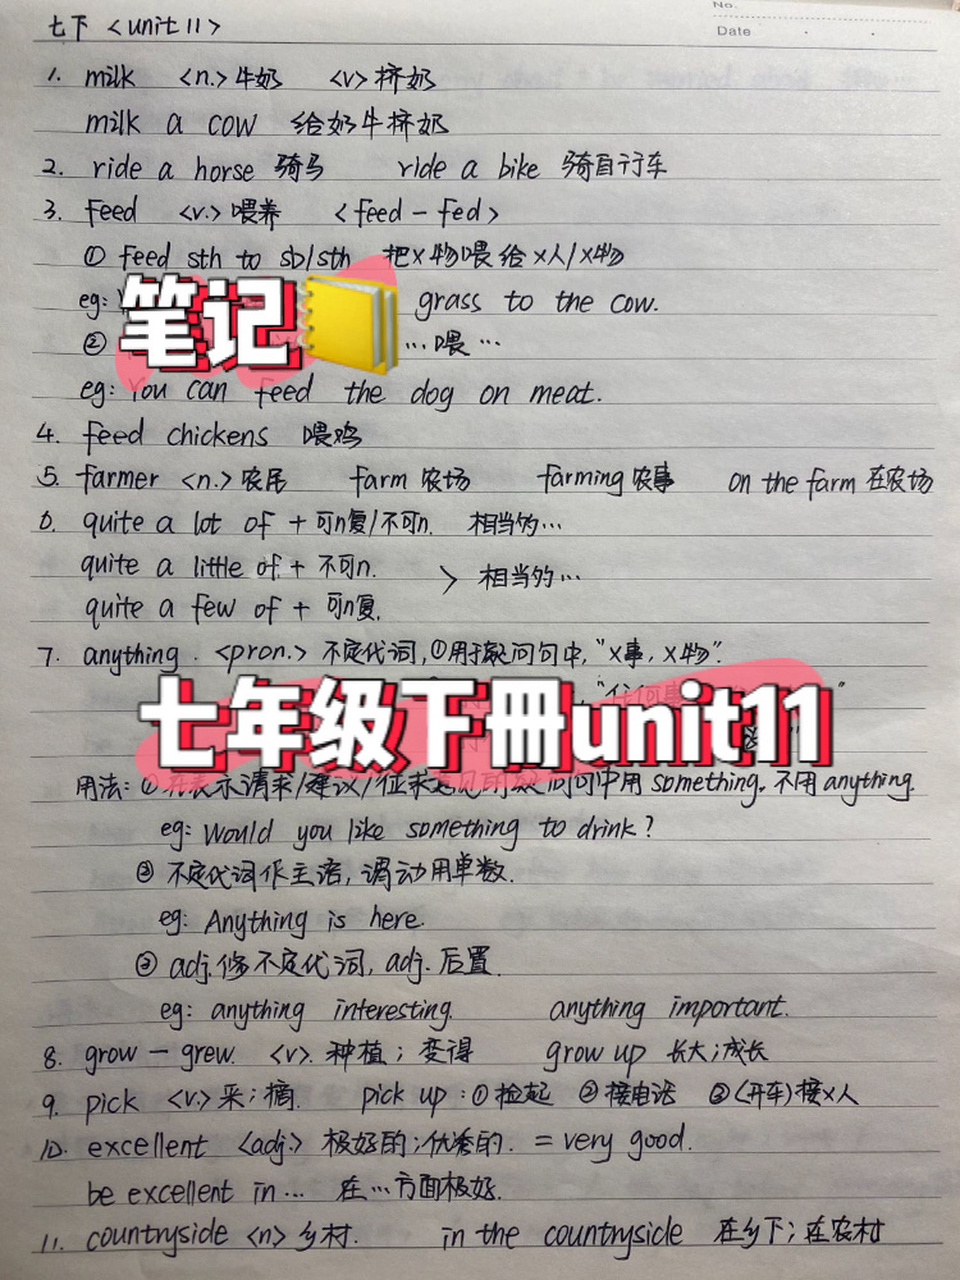 No.
七下 <unit 11>
Date
1. milk <n.> 牛奶 <v> 挤奶
milk a cow 给奶牛挤奶
2. ride a horse 骑马 ride a bike 骑自行车
3. feed <v.> 喂养 <feed - fed>
① feed sth to sb/sth 把X物喂给X人/X物
eg: grass to the cow.
笔记
② …喂…
eg: You can feed the dog on meat.
4. feed chickens 喂鸡
5. farmer <n.> 农民 farm 农场 farming 农事 on the farm 在农场
6. quite a lot of + 可n复/不可n. 相当的…
quite a little of + 不可n.
> 相当的…
quite a few of + 可n复.
7. anything. <pron.> 不定代词, ①用于疑问句中, "X事, X物".
, "任何事 "
七年级下册unit11
用法: ①在表示请求/建议/征求意见的疑问句中用 something. 不用 anything.
eg: Would you like something to drink?
② 不定代词作主语, 谓动用单数.
eg: Anything is here.
③ adj.修不定代词, adj. 后置.
eg: anything interesting. anything important.
8. grow - grew. <v>. 种植; 变得 grow up 长大;成长
9. pick <v.> 采; 摘. pick up: ① 捡起 ② 接电话 ③ (开车)接X人
10. excellent <adj.> 极好的;优秀的. = very good.
be excellent in … 在…方面极好.
11. countryside <n> 乡村. in the countryside 在乡下; 在农村